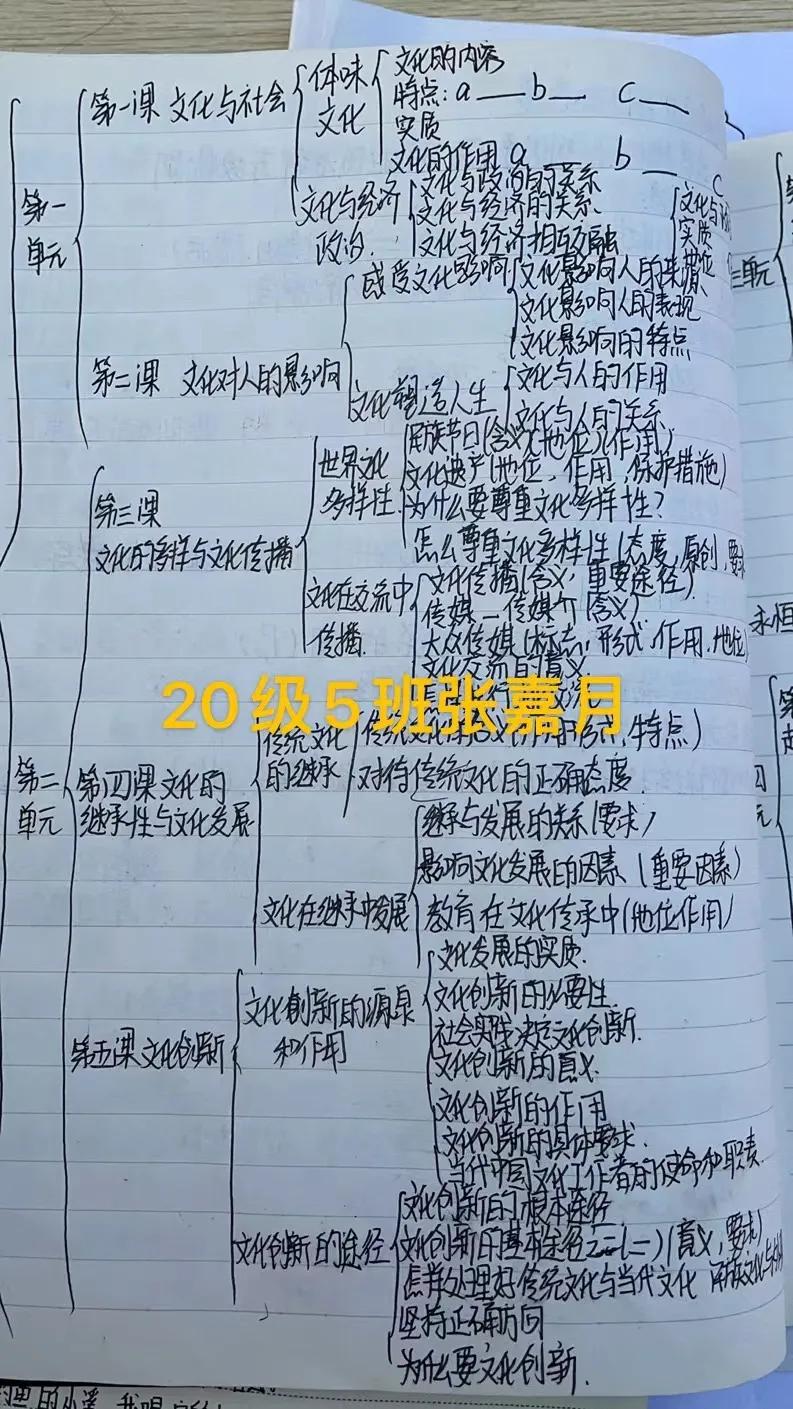 第一单元
第一课 文化与社会
体味文化
文化的内容
特点: a — b — c —
实质
文化的作用 a b — c
文化与经济政治.
文化与政治的关系
文化与经济的关系.
文化与经济相互交融
第二课 文化对人的影响
感受文化影响
文化影响人的来源.
文化影响人的表现
文化影响的特点
文化塑造人生
文化与人的作用
文化与人的关系
第二单元
第三课
文化的多样与文化传播
世界文化多样性
民族节日(含义)(地位)(作用)
文化遗产(地位, 作用, 保护措施)
为什么要尊重文化多样性?
怎么尊重文化多样性(态度, 原创, 要求
文化在交流中传播.
文化传播(含义, 重要途径)
传媒—传媒个(含义)
大众传媒(标志, 形式, 作用, 地位)
文化交流的意义
20级5班张嘉月
第四课 文化的
继承性与文化发展
传统文化的继承
传统文化的含义 特点)
对待传统文化的正确态度.
文化在继承中发展
继承与发展的关系(要求)
影响文化发展的因素(重要因素)
教育在文化传承中(地位作用)
文化发展的实质.
第五课 文化创新
文化创新的源泉
和作用
文化创新的必要性.
社会实践决定文化创新.
文化创新的意义.
文化创新的作用
文化创新的具体要求.
当代中国文化工作者的使命和职责.
文化创新的途径
文化创新的根本途径
文化创新的基本途径(一)(意义, 要求)
怎样处理好传统文化与当代文化 民族文化与
坚持正确方向
为什么要文化创新.